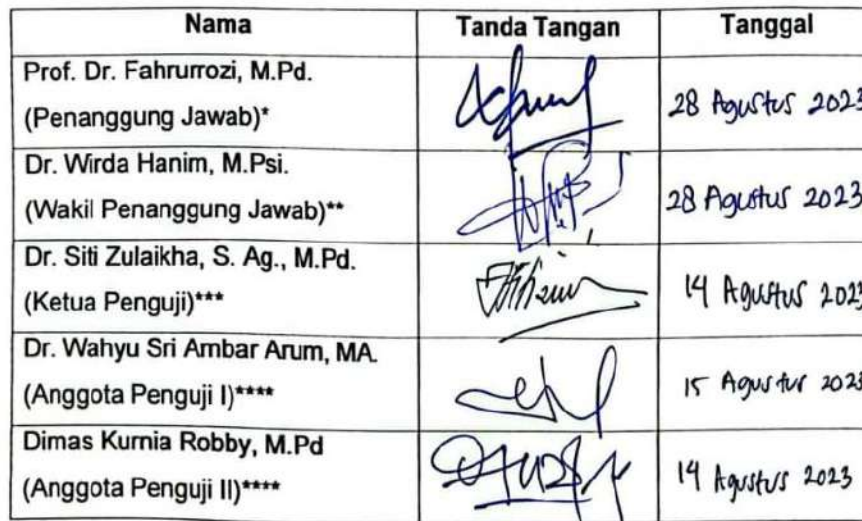 Nama Tanda Tangan Tanggal
Prof. Dr. Fahrurrozi, M.Pd.
(Penanggung Jawab)*
28 Agustus 2023
Dr. Wirda Hanim, M.Psi.
(Wakil Penanggung Jawab)**
28 Agustus 2023
Dr. Siti Zulaikha, S. Ag., M.Pd.
(Ketua Penguji)***
14 Agustus 2023
Dr. Wahyu Sri Ambar Arum, MA.
(Anggota Penguji I)****
15 Agustus 2023
Dimas Kurnia Robby, M.Pd
(Anggota Penguji II)****
14 Agustus 2023